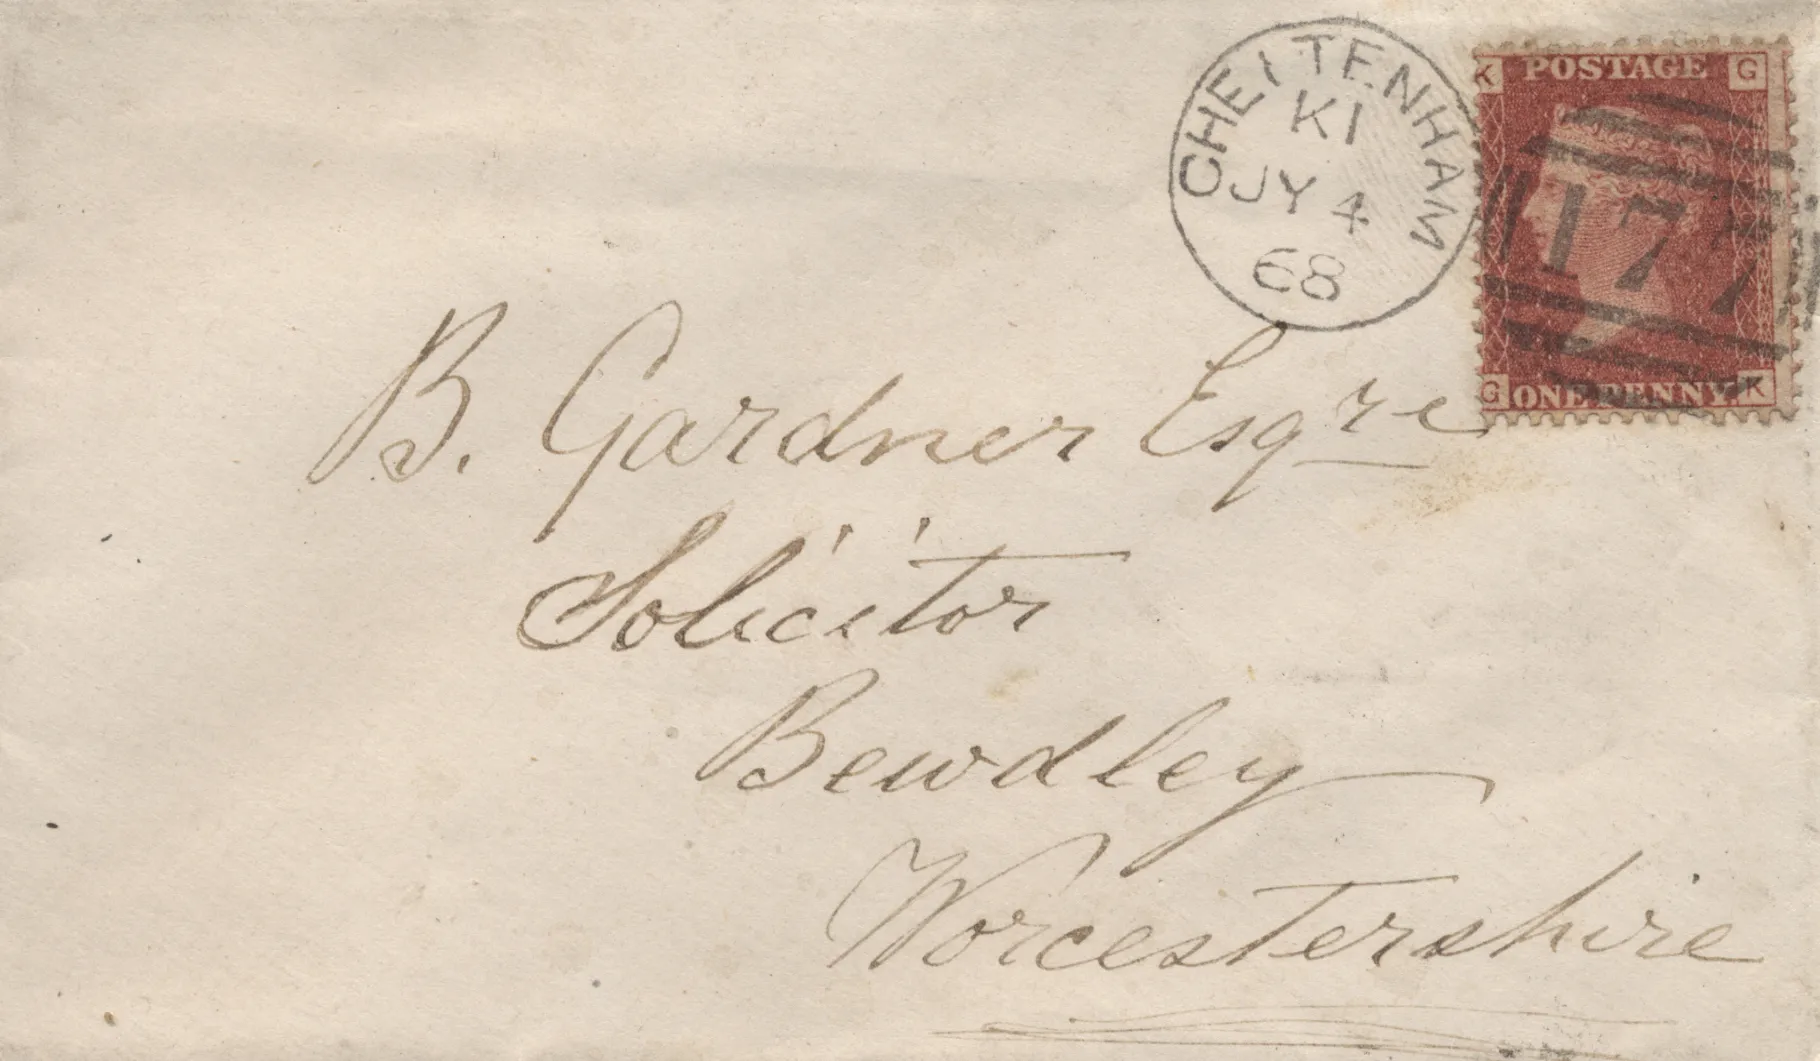 CHELTENHAM
K1
JY 4
68
K POSTAGE G
177
G ONE PENNY. K
B. Gardner Esqre
Solicitor
Bewdley
Worcestershire